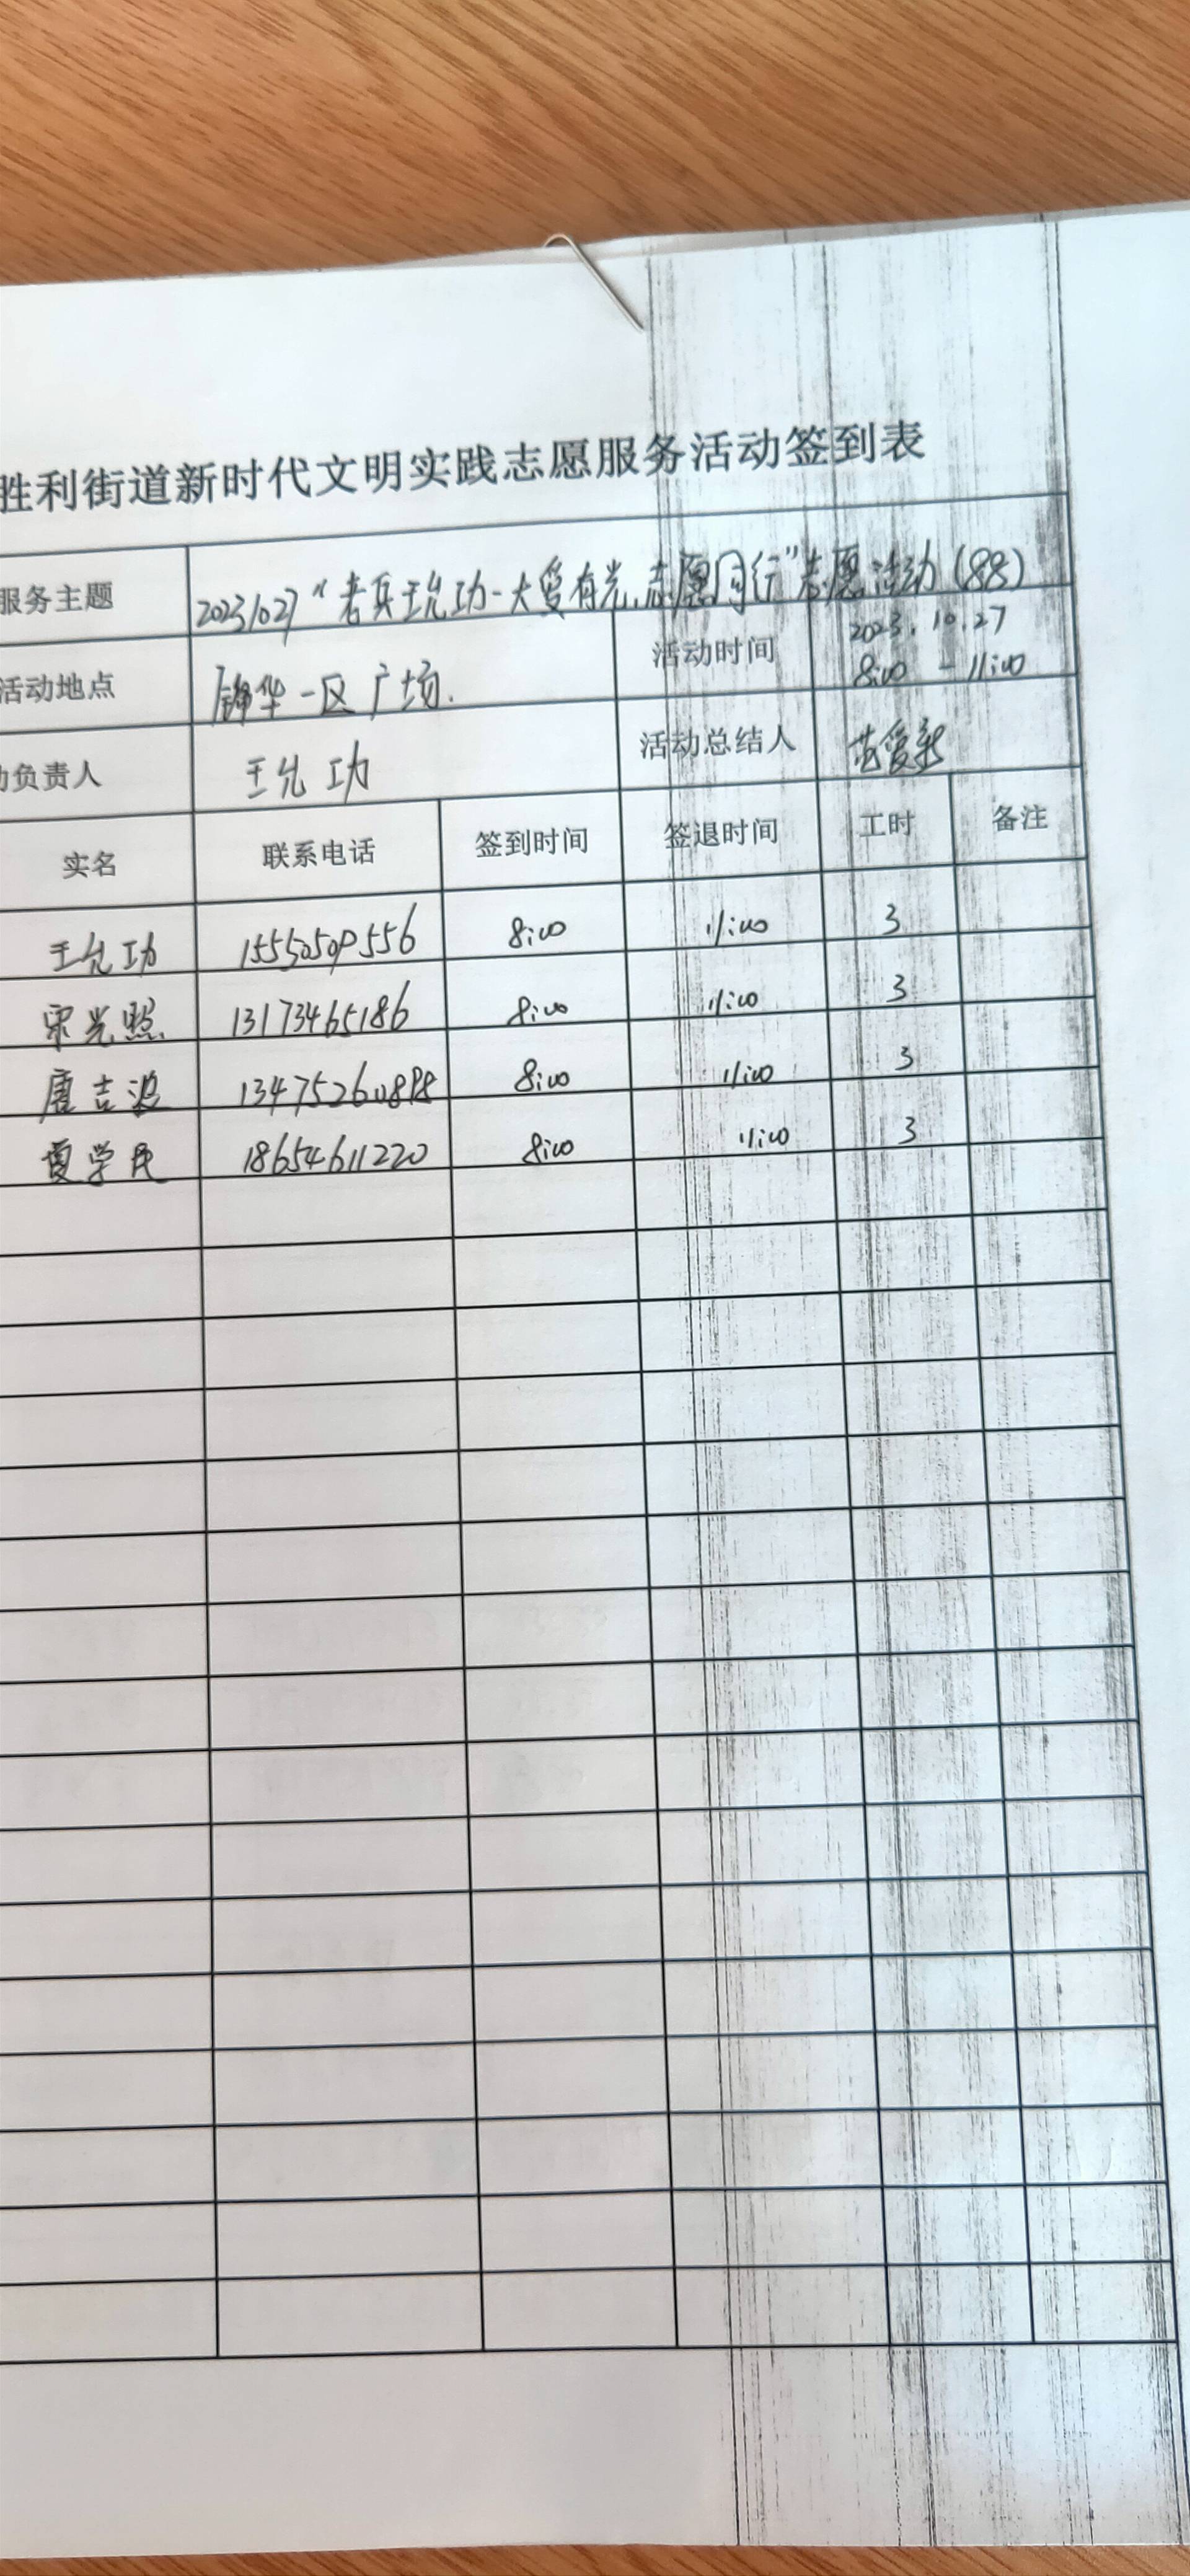 胜利街道新时代文明实践志愿服务活动签到表
服务主题 20231027 “老兵王允功-大爱有光,志愿同行”志愿活动(88)
活动地点 锦华一区广场. 活动时间 2023.10.27
8:00 - 11:00
负责人 王允功 活动总结人 苗爱新
实名 联系电话 签到时间 签退时间 工时 备注
王允功 15550509556 8:00 11:00 3
宋光照 13173465186 8:00 11:00 3
唐吉波 13475260898 8:00 11:00 3
夏学民 18654611220 8:00 11:00 3